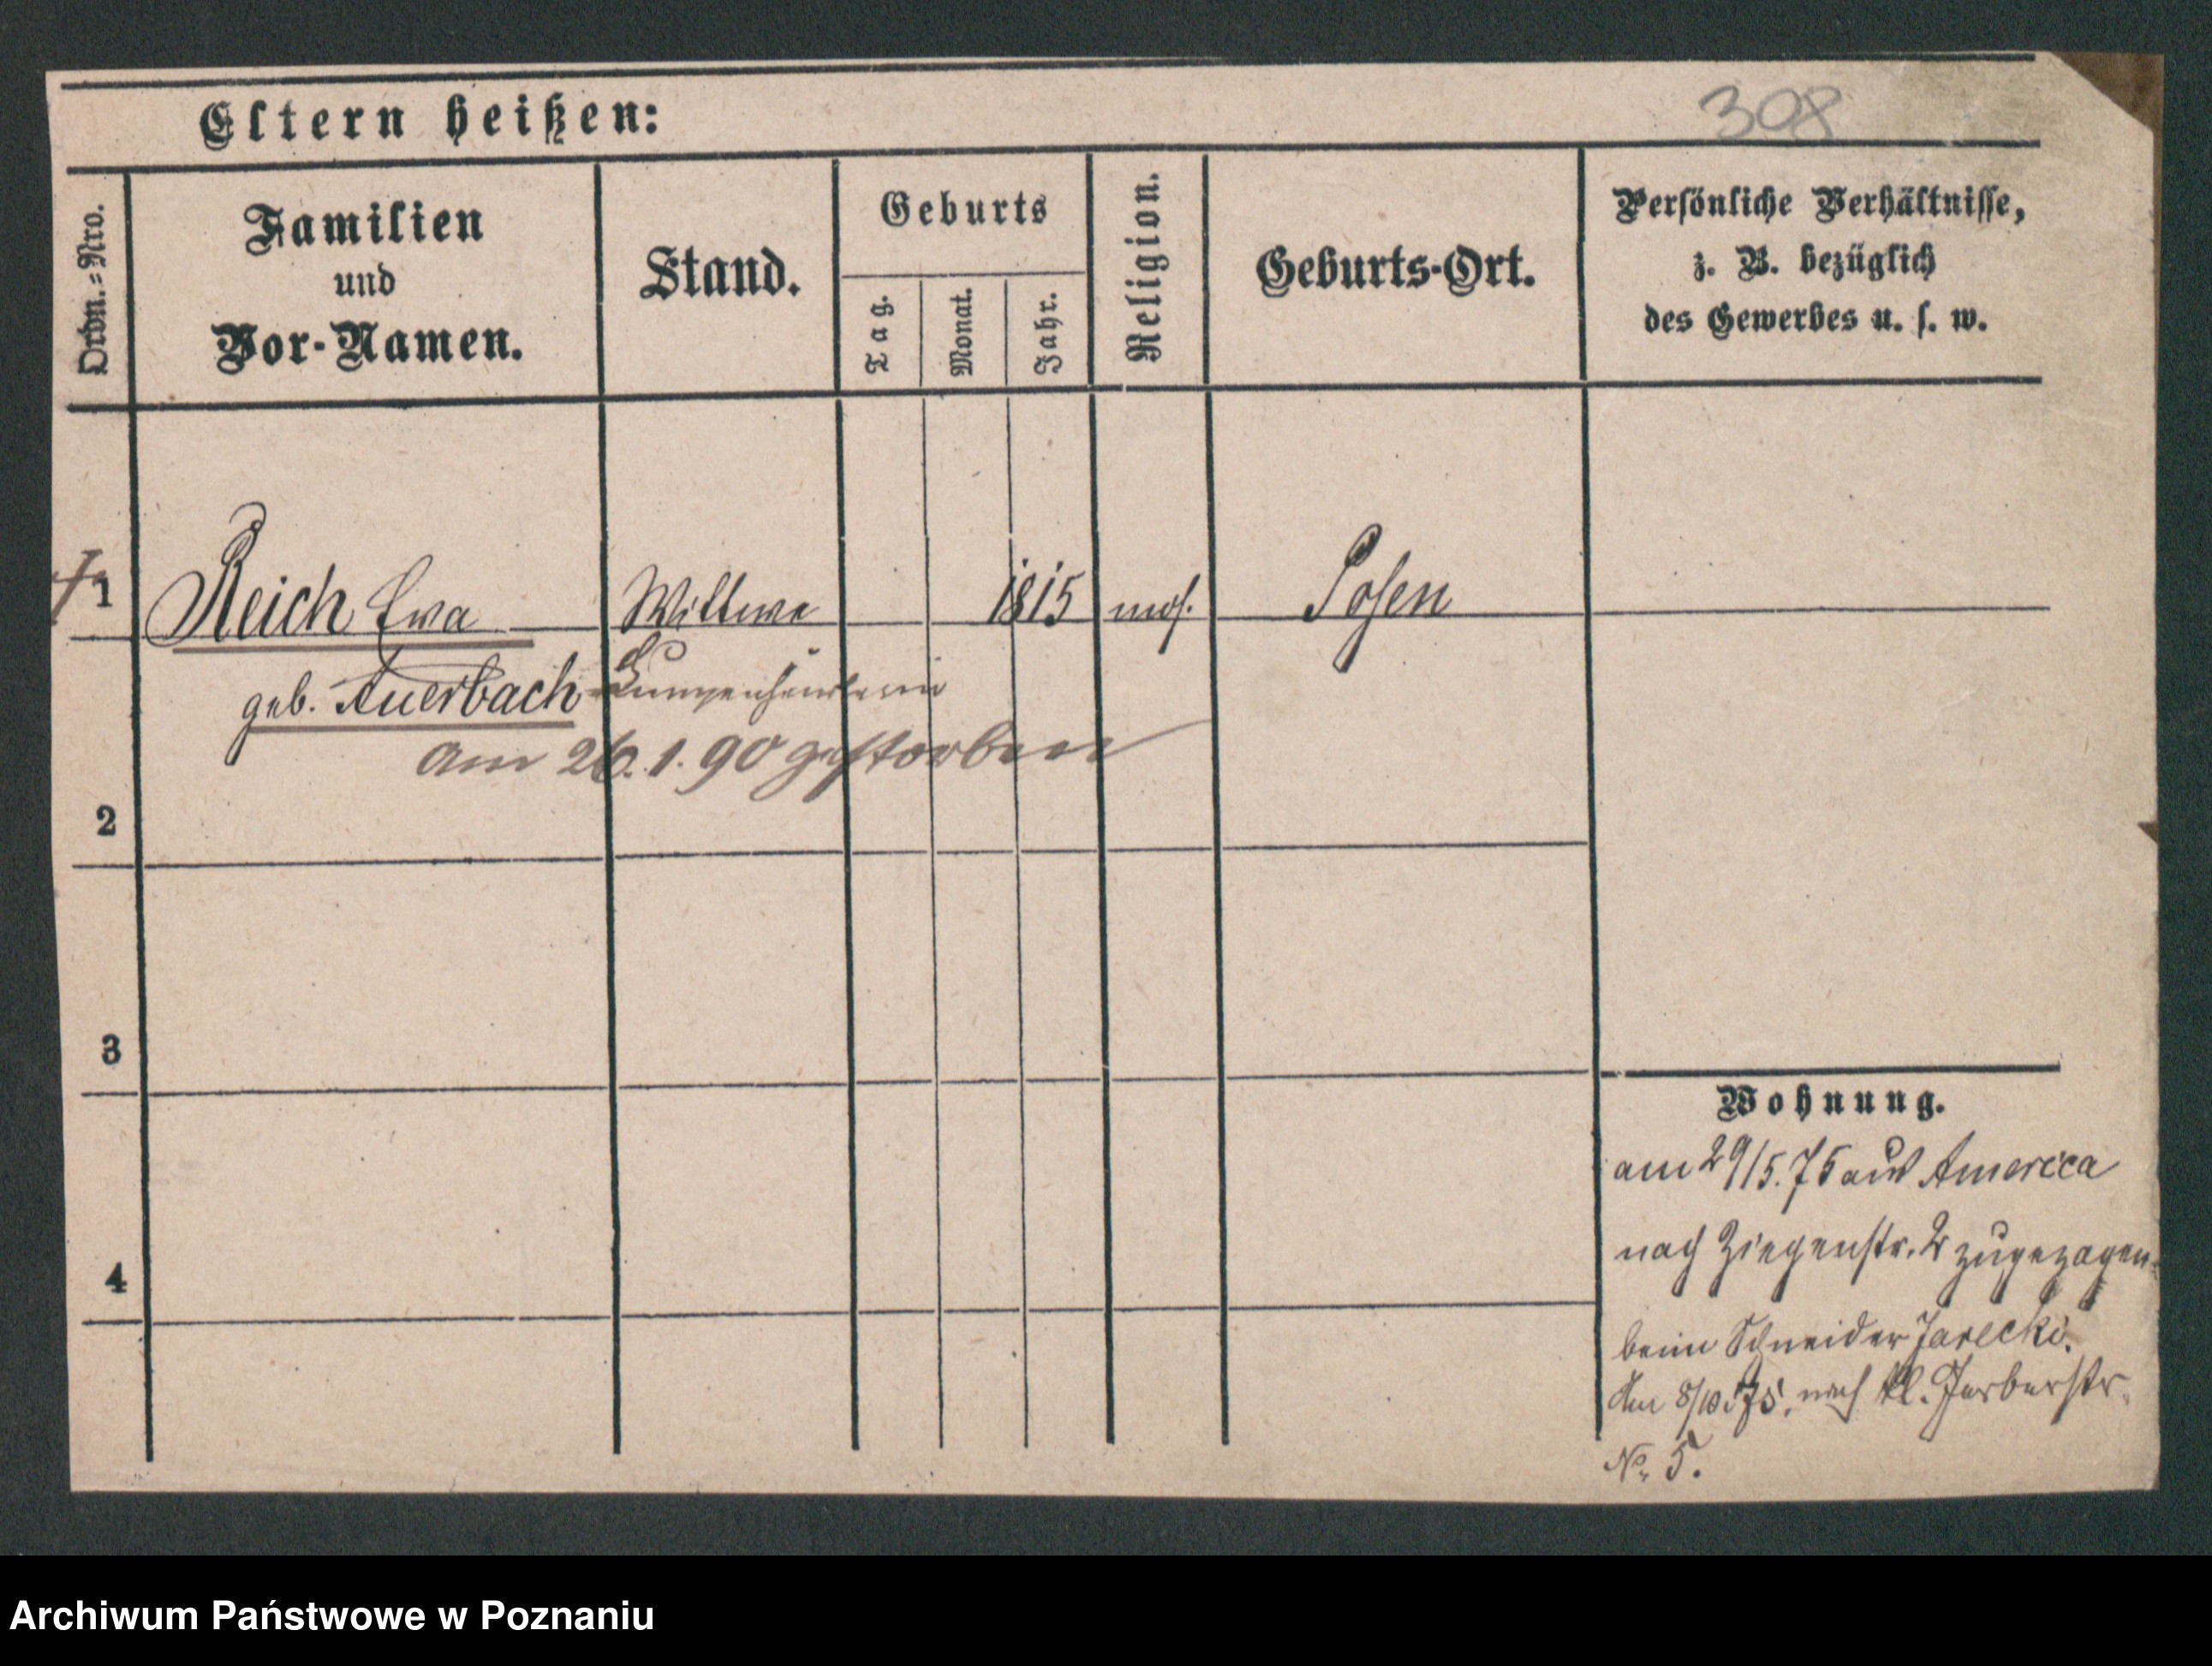 Eltern heißen:
308
Ordn.=Nro.
Familien
und
Vor-Namen.
Stand.
Geburts
Tag.
Monat.
Jahr.
Religion.
Geburts-Ort.
Persönliche Verhältnisse,
z. B. bezüglich
des Gewerbes u. s. w.
1 Reich Ewa Wittwe 1815 mos. Posen
geb. Auerbach Lumpenhändlerin
am 26.1.90 gestorben
2
3
4
Wohnung.
am 29/5.75 aus America
nach Ziegenstr. 2 zugezogen
beim Schneider Jarecki.
Am 8/10.75. nach kl. Gerberstr.
No. 5.
Archiwum Państwowe w Poznaniu